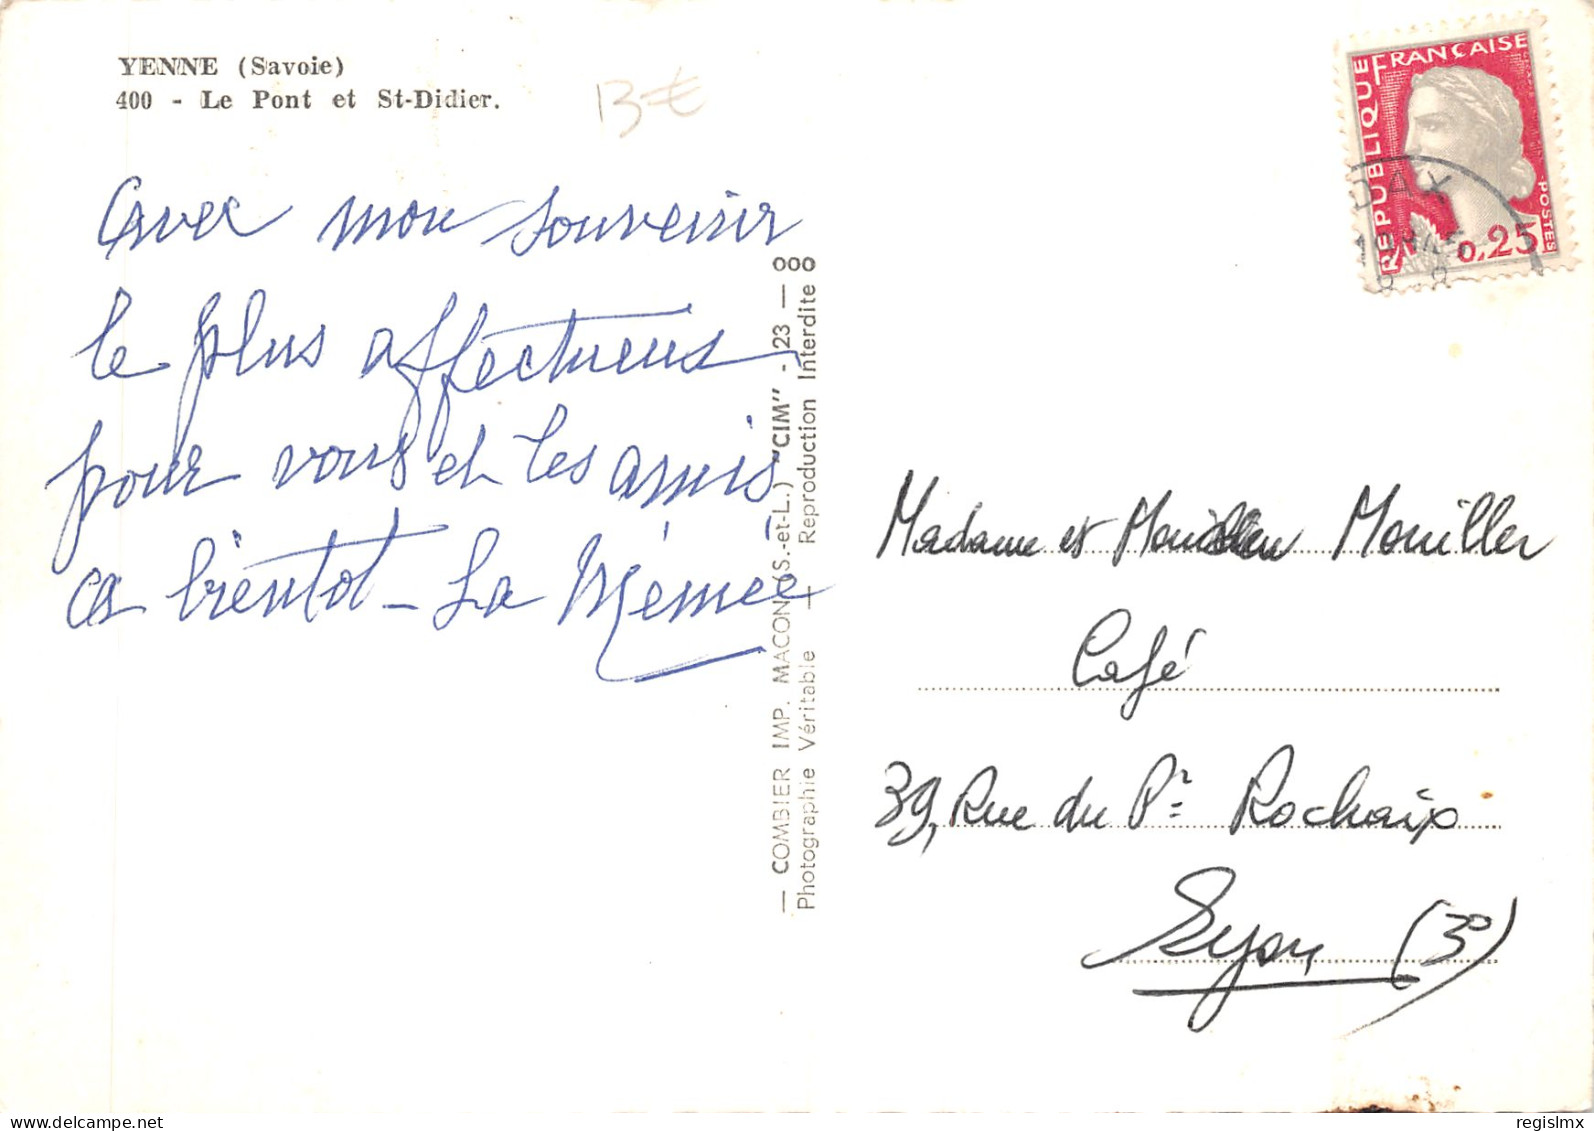 YENNE (Savoie)
400 - Le Pont et St-Didier.
13 €
Avec mon souvenir
le plus affectueux
pour vous et les amis
a bientot - La Mémée
— COMBIER IMP. MACON (S.-et-L.) "CIM" - 23 — 000
Photographie Véritable — Reproduction Interdite
RÉPUBLIQUE FRANÇAISE
POSTES
0,25
DAX
Madame et Monsieur Mouiller
Café
39, Rue du Pr Rochaix
Lyon (3°)
regislmx